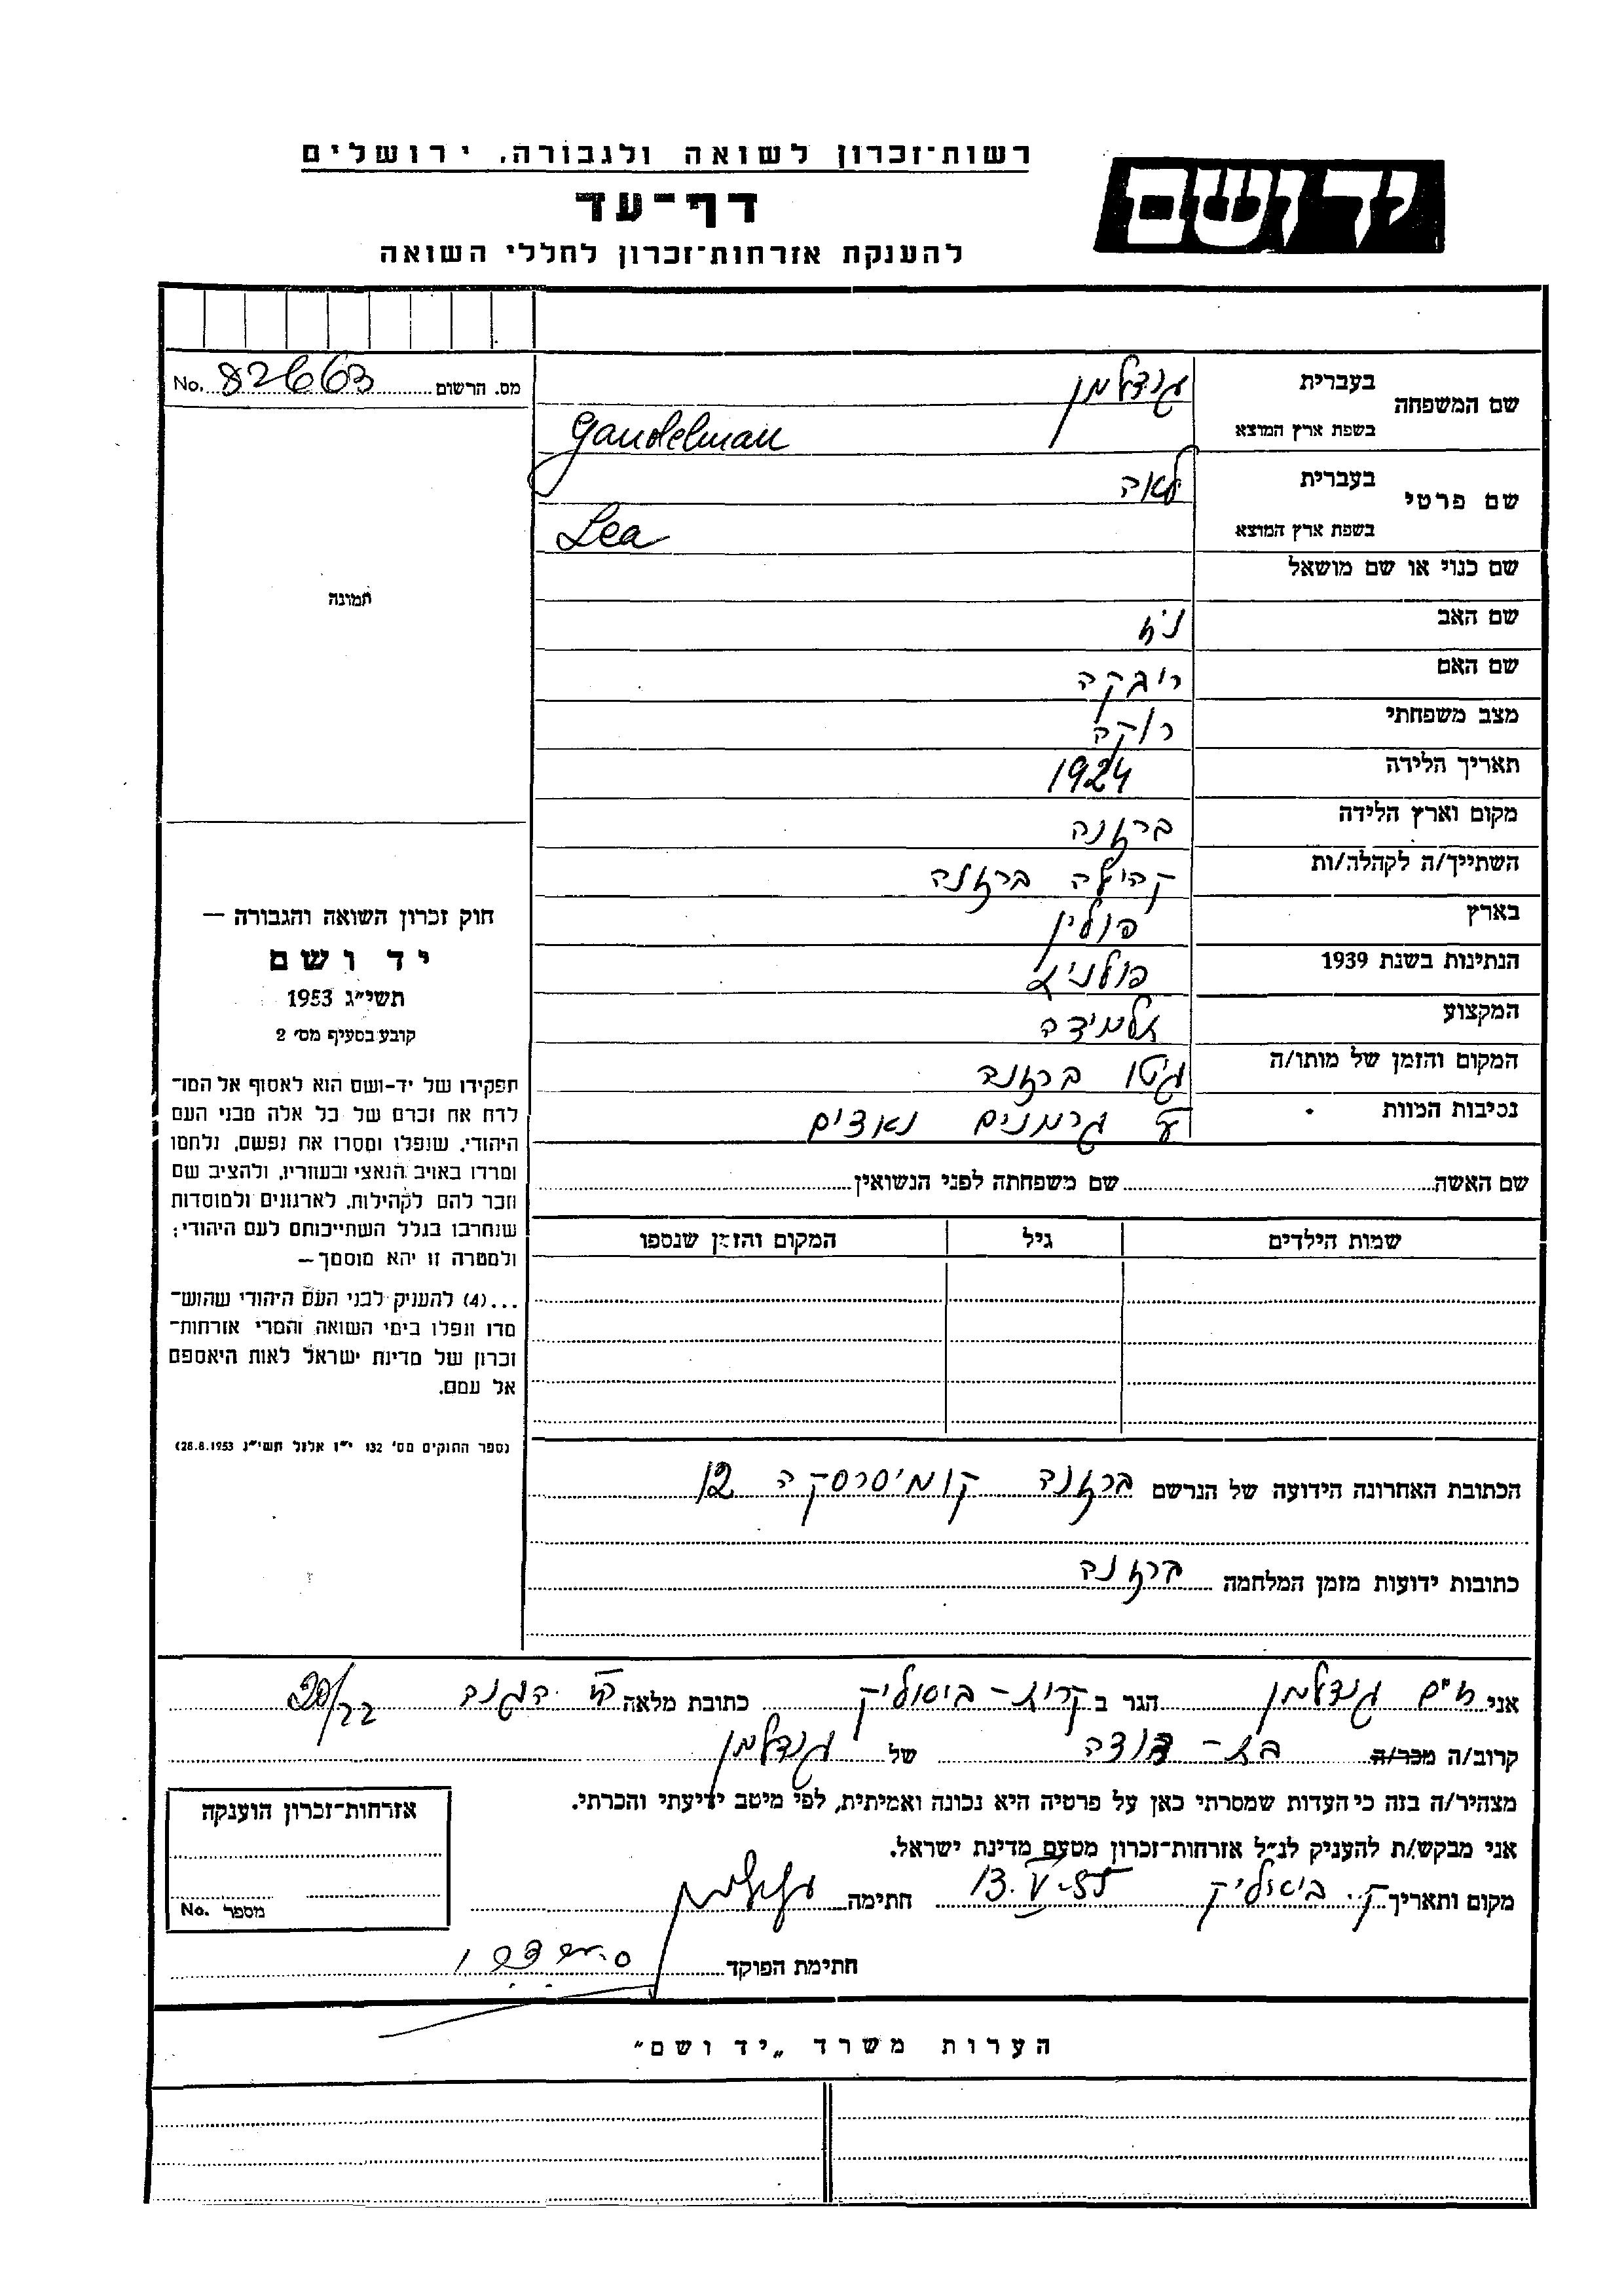 רשות־זכרון לשואה ולגבורה, ירושלים
יד ושם
דף־עד
להענקת אזרחות־זכרון לחללי השואה
מס. הרשום 82663 No.
שם המשפחה בעברית גנדלמן
בשפת ארץ המוצא Gandelman
שם פרטי בעברית לאה
בשפת ארץ המוצא Lea
שם כנוי או שם מושאל
שם האב
שם האם רובקה
מצב משפחתי רוקה
תאריך הלידה 1924
מקום וארץ הלידה ברזנה
השתייך/ה לקהלה/ות קהילה ברזנה
בארץ פולין
הנתינות בשנת 1939 פולנית
המקצוע תלמידה
המקום והזמן של מותו/ה גיטו ברזנה
נסיבות המוות ע"י גרמנים נאצים
שם האשה שם משפחתה לפני הנשואין
שמות הילדים גיל המקום והזמן שנספו
הכתובת האחרונה הידועה של הנרשם ברזנה קומיסרסקה 12
כתובות ידועות מזמן המלחמה ברזנה
תמונה
חוק זכרון השואה והגבורה —
יד ושם
תשי״ג 1953
קובע בסעיף מס׳ 2
תפקידו של יד־ושם הוא לאסוף אל המו־
לדת את זכרם של כל אלה מבני העם
היהודי, שנפלו ומסרו את נפשם, נלחמו
ומרדו באויב הנאצי ובעוזריו, ולהציב שם
וזכר להם לקהילות, לארגונים ולמוסדות
שנחרבו בגלל השתייכותם לעם היהודי;
ולמטרה זו יהא מוסמך —
...(4) להעניק לבני העם היהודי שהוש־
מדו ונפלו בימי השואה והמרי אזרחות־
זכרון של מדינת ישראל לאות היאספם
אל עמם.
(ספר החוקים מס׳ 132 י״ז אלול תשי״ג 28.8.1953)
אני חיים גנדלמן הגר ב קרית - ביאליק כתובת מלאה
קרוב/ה מכר/ה בת - דודה של גנדלמן
מצהיר/ה בזה כי העדות שמסרתי כאן על פרטיה היא נכונה ואמיתית, לפי מיטב ידיעתי והכרתי.
אני מבקש/ת להעניק לנ״ל אזרחות־זכרון מטעם מדינת ישראל.
מקום ותאריך ק. ביאליק 13.V.55 חתימה
חתימת הפוקד
אזרחות־זכרון הוענקה
מספר No.
הערות משרד „יד ושם״